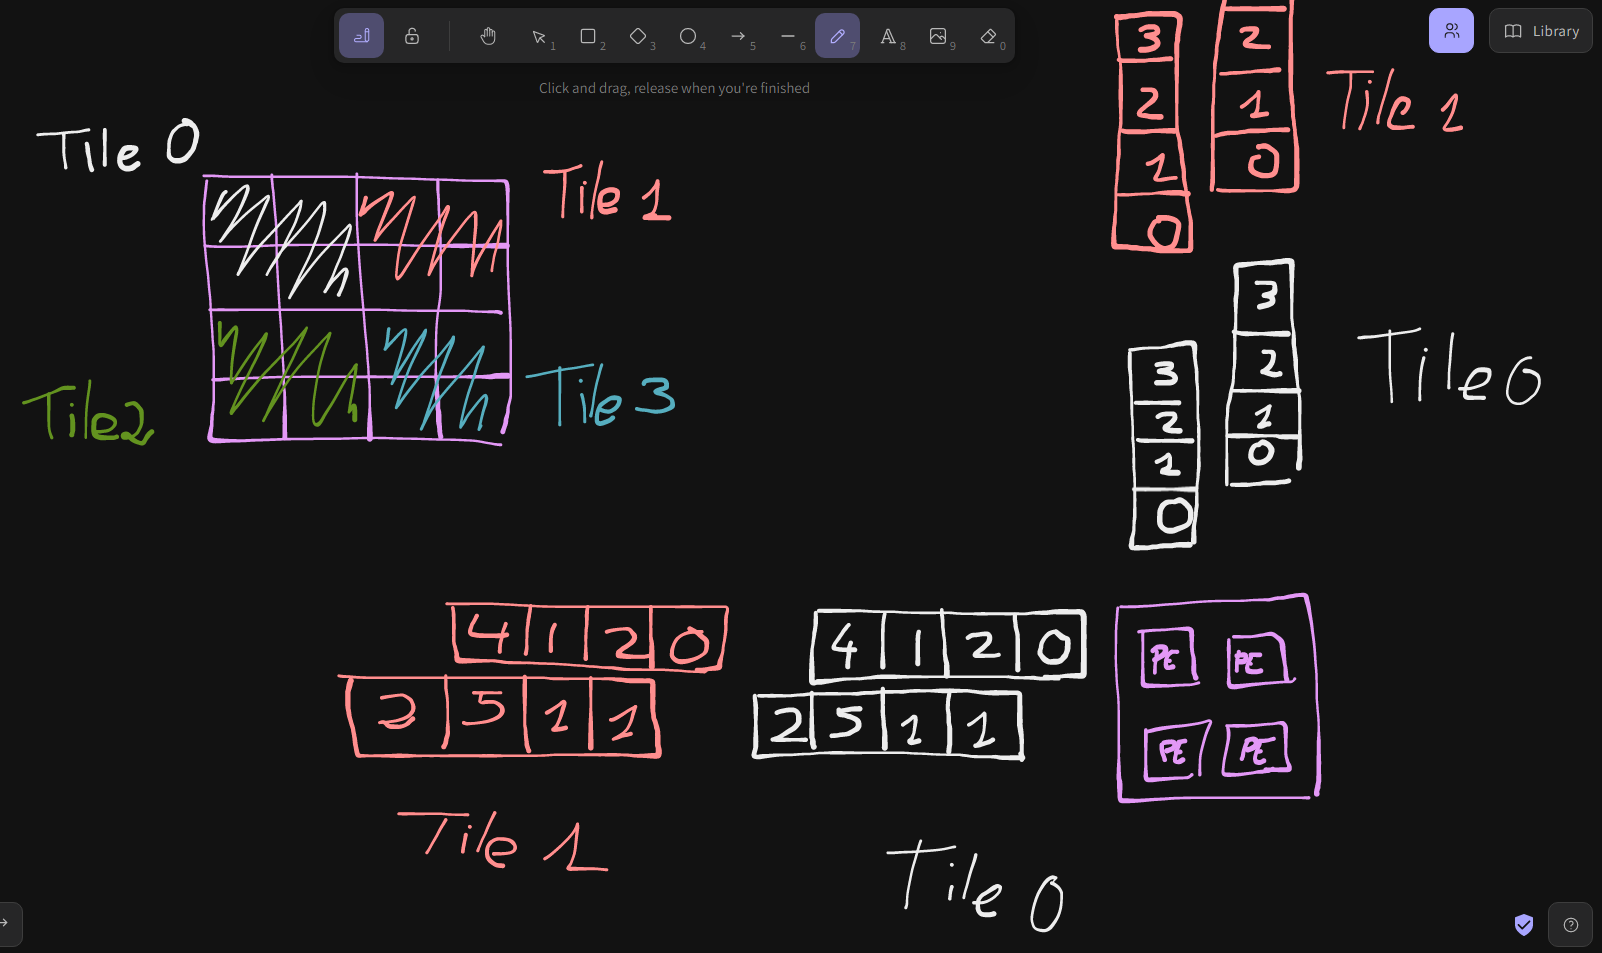 1
2
3
4
5
6
7
8
9
0
Library
Click and drag, release when you're finished
3
2
1
0
2
1
0
Tile 1
Tile 0
Tile 1
Tile2
Tile 3
3
2
1
0
3
2
1
0
Tile 0
4 1 2 0
2 5 1 1
Tile 1
4 1 2 0
2 5 1 1
Tile 0
PE PE
PE PE